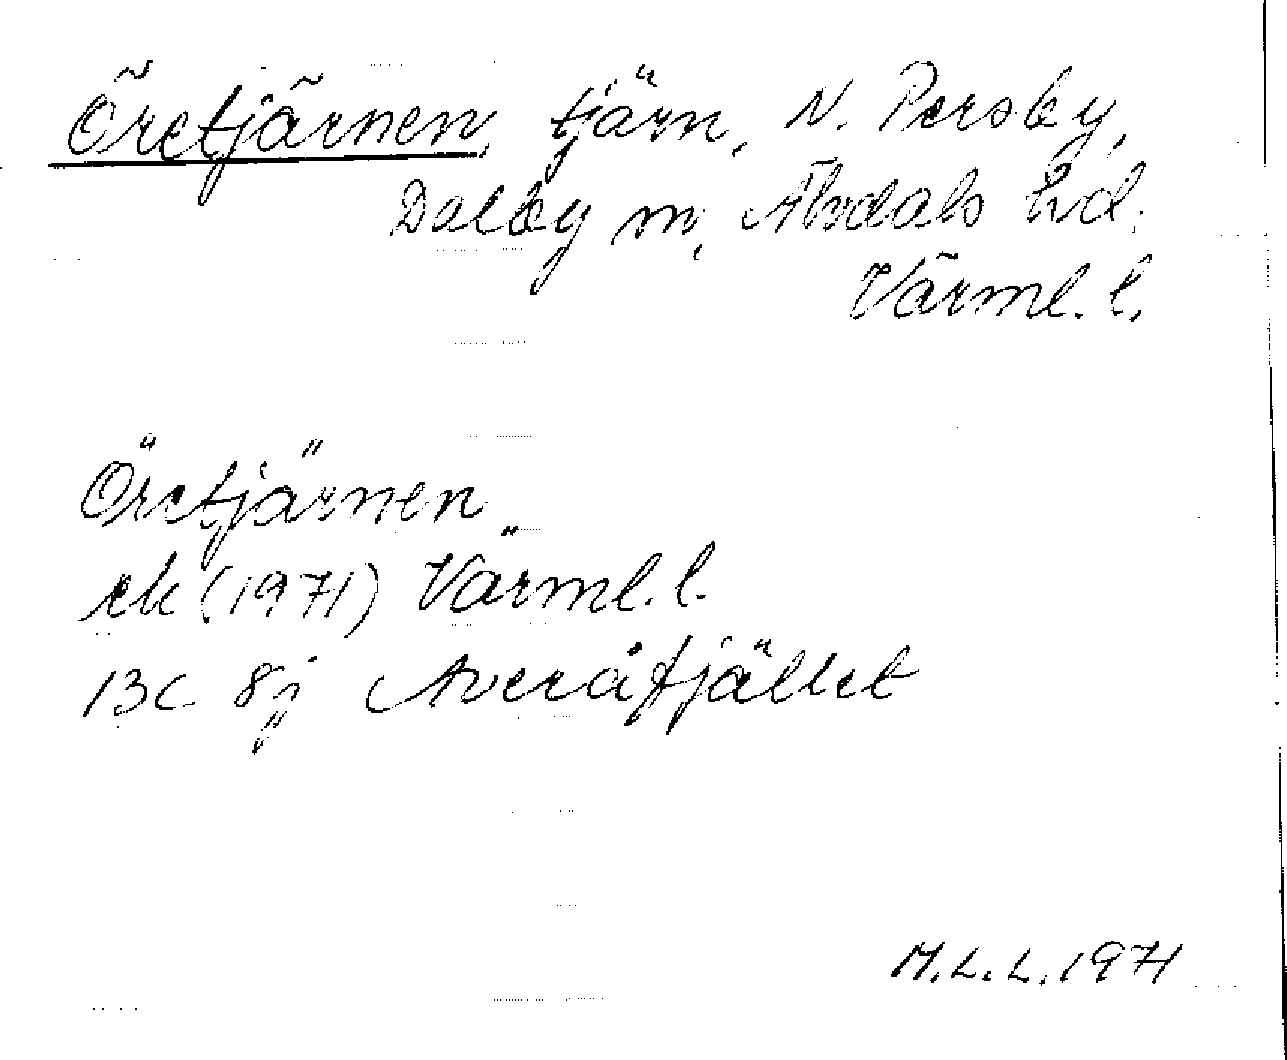 Öretjärnen, tjärn, N. Persby,
Dalby sn, Älvdals hd.
Värml. l.
Öretjärnen
ek (1971) Värml. l.
13C 8j Averåfjället
M.L.L. 1971